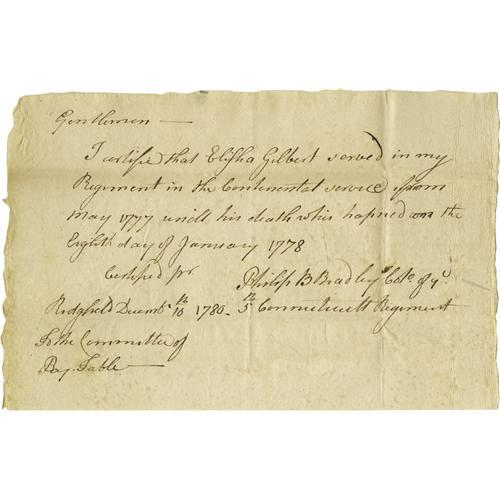 Gentlemen —
I certifie that Elisha Gilbert served in my
Regiment in the Continental service from
may 1777 untill his death whis hapned on the
Eighth day of January 1778
Certified pr. Philip B Bradley Colo. of ye
Ridgfield Decembr. 16th 1780 — 5th Connecticutt Regiment
To the Committee of
Pay-Table —